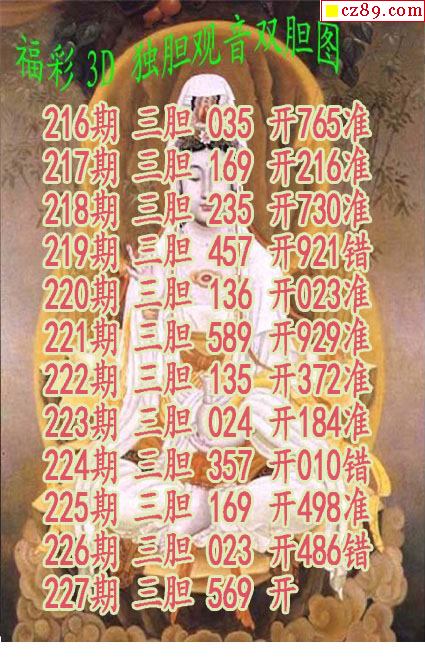 cz89.com
福彩 3D 独胆观音双胆图
216期 三胆 035 开765准
217期 三胆 169 开216准
218期 三胆 235 开730准
219期 三胆 457 开921错
220期 三胆 136 开023准
221期 三胆 589 开929准
222期 三胆 135 开372准
223期 三胆 024 开184准
224期 三胆 357 开010错
225期 三胆 169 开498准
226期 三胆 023 开486错
227期 三胆 569 开